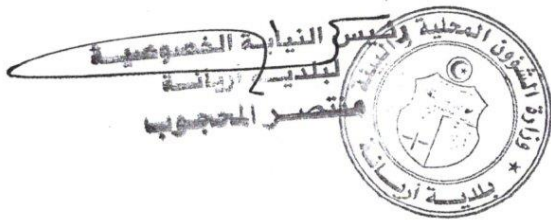 رئيس النيابة الخصوصية
لبلدية أريانة
منتصر المحجوب
وزارة الشؤون المحلية والبيئة
★ بلدية أريانة